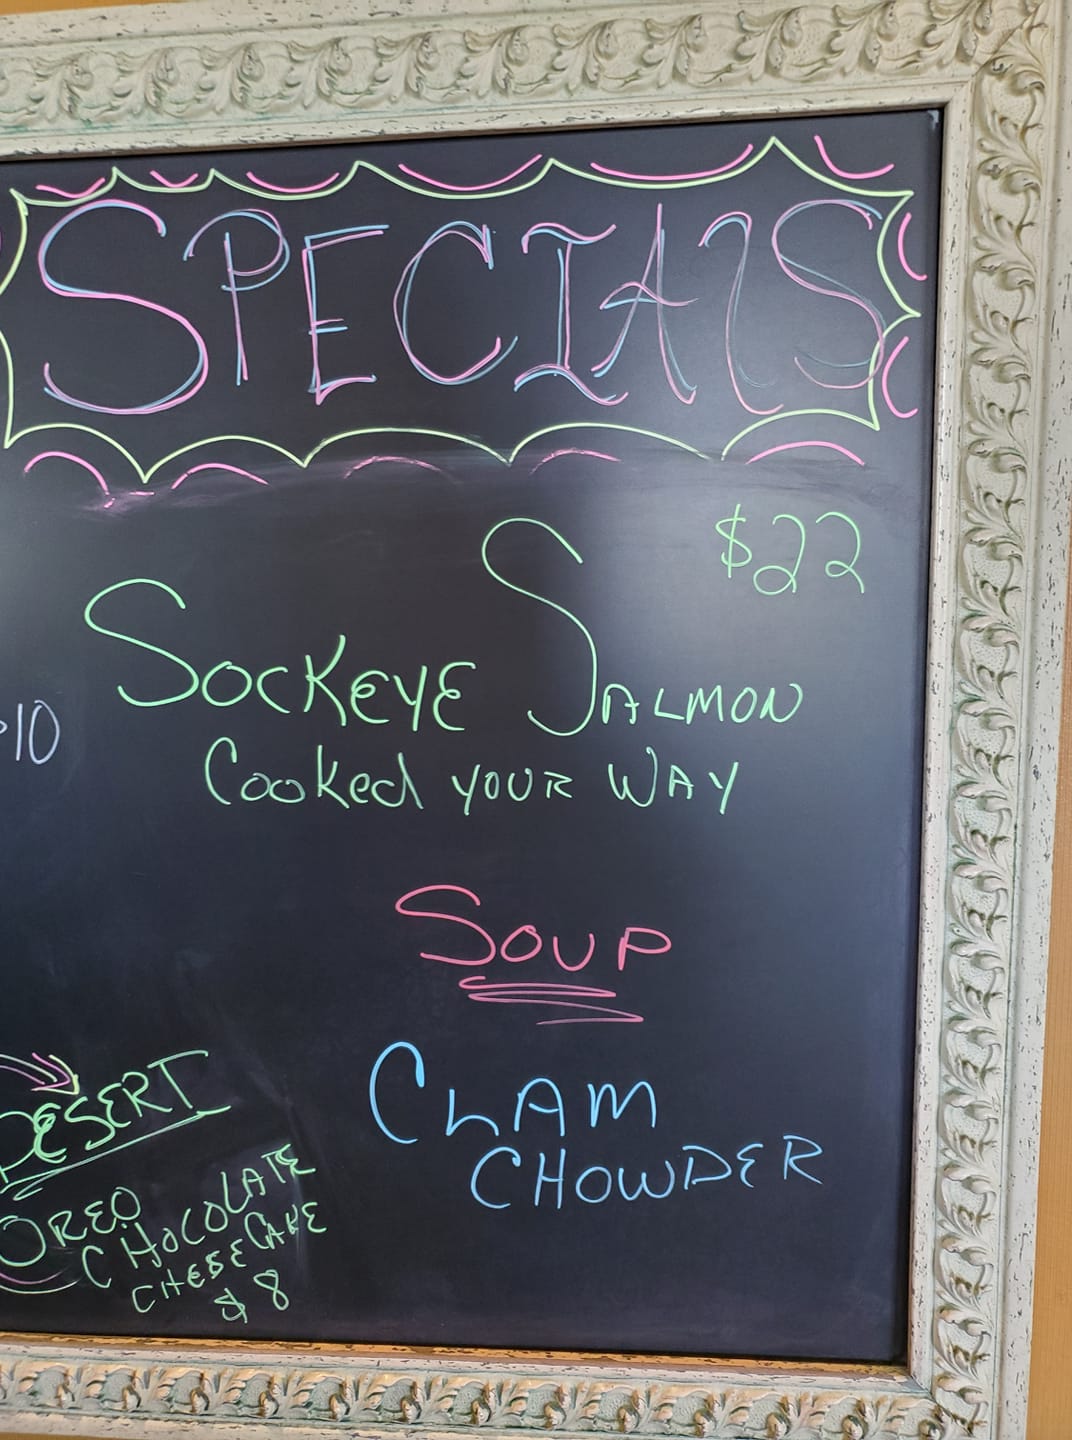 SPECIALS
$22
SOCKEYE SALMON
Cooked YOUR WAY
10
SOUP
CLAM
CHOWDER
DESERT
OREO
CHOCOLATE
CHESECAKE
$8